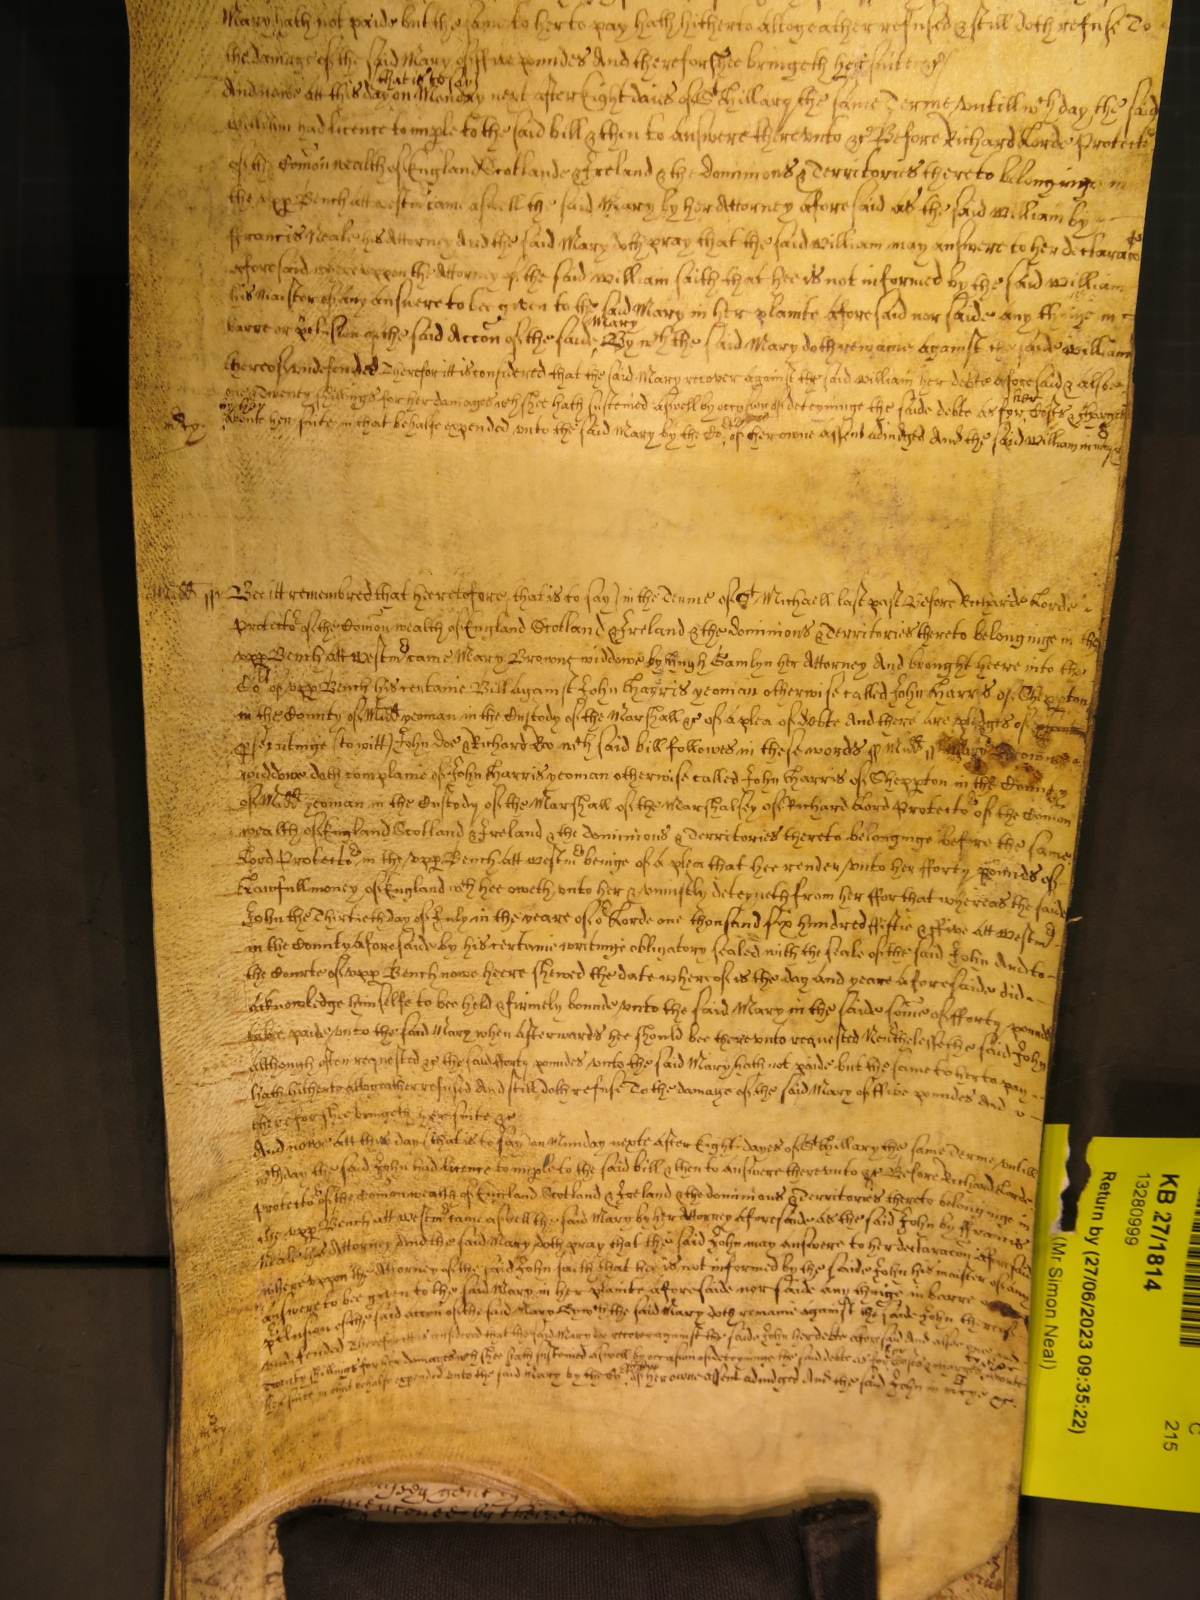 Mary hath not paide but the same to her to pay hath hitherto altogeather refused & still doth refuse To
the damage of the said Mary of ffive poundes And therefor shee bringeth her suite &c
that is to say
And nowe att this day on Monday next after Eight daies of St Hillary the same Terme untill wch day the said
William had licence to imple to the said bill & then to answere thereunto &c Before Richard Lorde Protector
of the Comonwealth of England Scotlande & Ireland & the dominions & Territories thereto belonginge in
the upp Bench att westmr came aswell the said Mary by her Attorney aforesaid as the said William by
ffrancis Neale his Attorney And the said Mary doth pray that the said William may answere to her declaracon
aforesaid whereuppon the Attorney of the said William saith that hee is not informed by the said William
his Maister of any answere to bee given to the said Mary in her plainte aforesaid nor saide any thinge in
Mary
barre or pclusion of the said Accon of the saide By wch the said Mary doth remaine against the saide William
thereof undefended Therefor itt is considered that the said Mary recover against the said William her debte aforesaid & alsoe
her
Twenty shillings for her damages wch shee hath susteined aswell by occasion of deteyninge the saide debte as for Costs & Charges
mcy
aboute her suite in that behalfe expended unto the said Mary by the Cot of her owne assent adiudged And the said William in mcy &c
Midd ss Bee itt remembred that heeretofore that is to say in the Terme of St Michaell last past Before Richarde Lorde
Protector of the Comonwealth of England Scotland & Ireland & the dominions & Territories thereto belonginge in the
upp Bench att westmr came Mary Browne widdowe by Hugh Hamlyn her Attorney And brought heere into the
Cot of upp Bench his certaine Bill against John Harris yeoman otherwise called John Harris of Shepton
in the County of Midd yeoman in the Custody of the Marshall &c of a plea of debte And there are pledges of
psecutinge (to witt) John Doe & Richard Roo wch said bill followes in these words ss Midd ss Mary Browne
widdowe doth complaine of John Harris yeoman otherwise called John Harris of Sheppton in the County
of Midd yeoman in the Custody of the Marshall of the Marshalsey of Richard Lord Protector of the Comon
wealth of England Scotland & Ireland & the Dominions & Territories thereto belonginge before the same
Lord Protector in the upp Bench att westmr beinge of a plea that hee render unto her fforty poundes of
Lawfull money of England wch hee oweth unto her & uniustly deteyneth from her ffor that whereas the saide
John the Thirtieth day of July in the yeare of or Lorde one thousand six hundred ffiftie & ffive att westmr
in the County aforesaide by his certaine writinge obligatory sealed with the seale of the said John And to
the Courte of upp Bench nowe heere shewed the date whereof is the day and yeare aforesaide did
Acknowledge himselfe to bee held & firmely bounde unto the said Mary in the saide some of fforty pounds
to bee paide unto the said Mary when afterwards hee should bee thereunto requested Neverthelesse the said John
although often requested &c the said fforty poundes unto the said Mary hath not paide but the same to her to pay
hath hitherto altogeather refused And still doth refuse To the damage of the said Mary of ffive poundes And
therefor shee bringeth her suite &c
And nowe att this day (that is to say) on Munday nexte after Eight dayes of St Hillary the same Terme untill
wch day the said John had licence to imple to the said bill & then to answere thereunto &c Before Richard Lorde
Protector of the Comonwealth of England Scotland & Ireland & the dominions & Territories thereto belonginge in
the upp Bench att westmr came aswell the said Mary by her Attorney aforesaide as the said John by ffrancis
Neale his Attorney And the said Mary doth pray that the said John may answere to her declaracon aforesaid
whereuppon the Attorney of the said John saith that hee is not informed by the saide John his maister of any
answere to bee given to the said Mary in her plainte aforesaide nor saide any thinge in barre or
pclusion of the said accon of the said Mary By wch the said Mary doth remaine against the saide John thereof
undefended Therefor itt is considered that the said Mary doe recover against the saide John her debte aforesaid And alsoe
Twenty shillings for her damages wch shee hath susteined aswell by occasion of deteyninge the said debte as for Costs & charges aboute
her suite in that behalfe expended unto the said Mary by the Cot of her owne assent adiudged And the said John in mcye &c
mcy
KB 27/1814
13280999
Return by (27/06/2023 09:35:22)
(Mr Simon Neal)
C
215